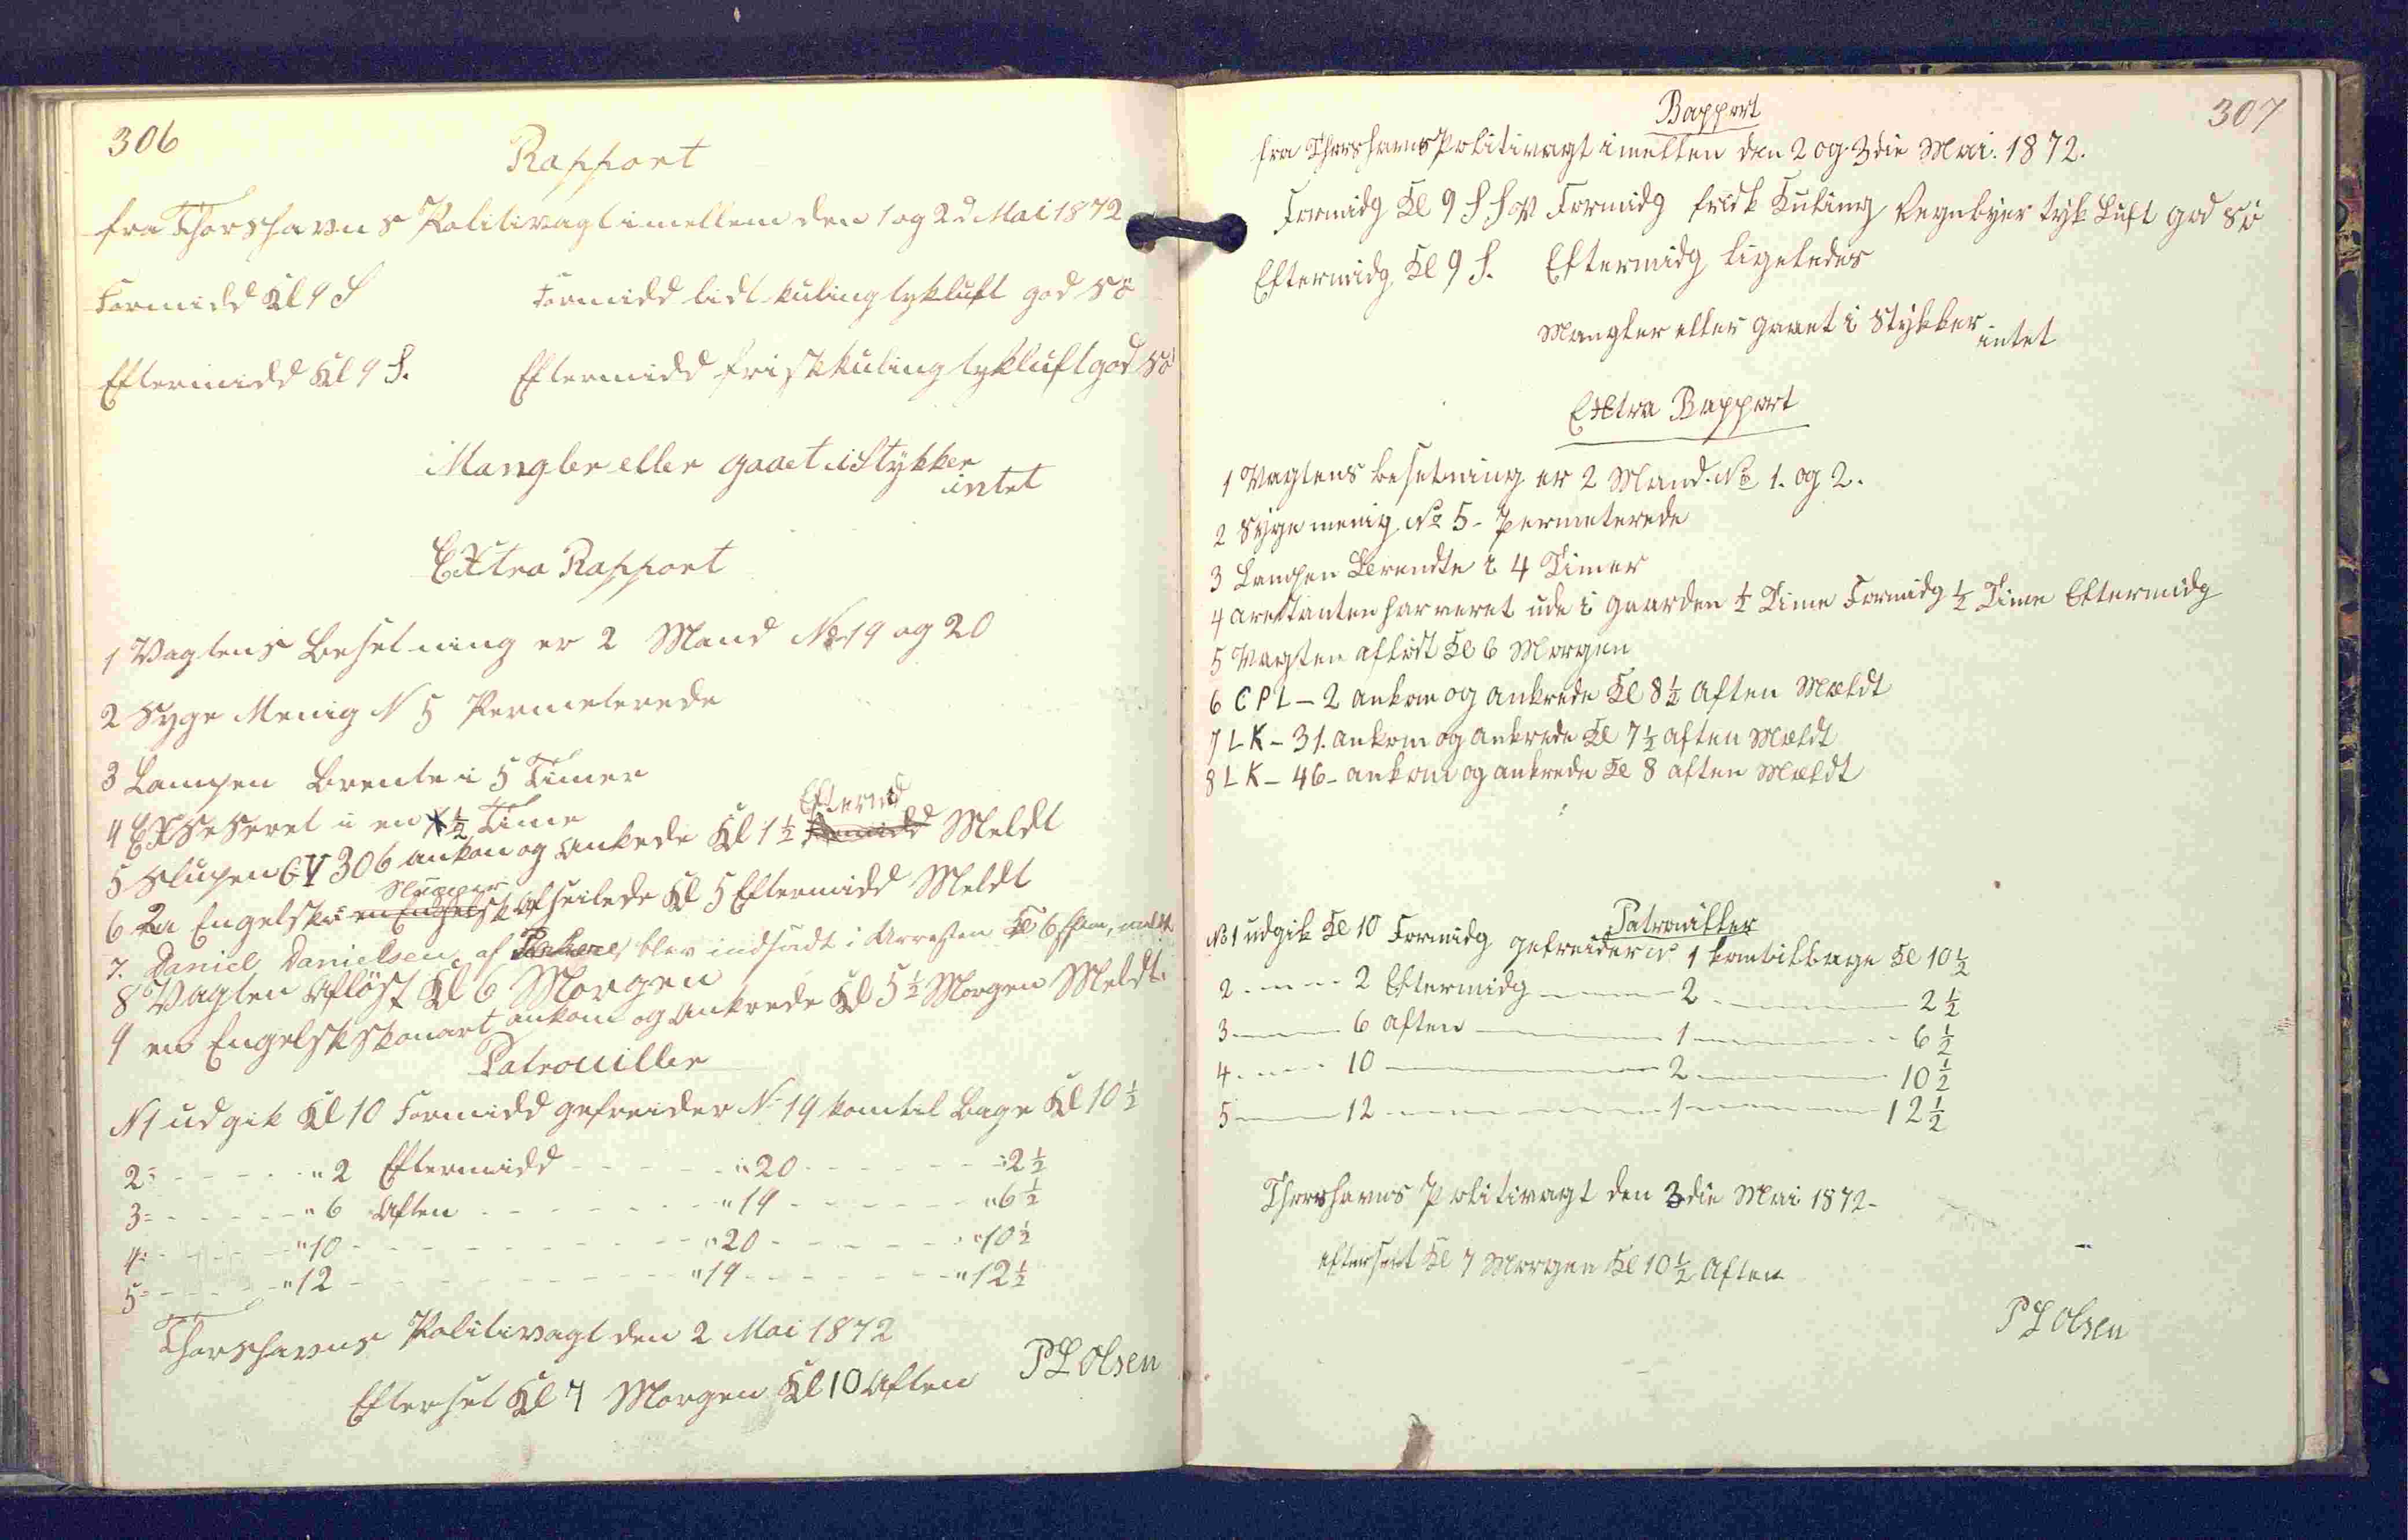 306
Rapport
fra Thorshavns Politivagt imellem den 1 og 2d Mai 1872
Formidd Kl 9 S Formidd lidt kuling tykluft god Sö
Eftermidd Kl 9 S. Eftermidd frisk kuling tykluft god Sö
Mangler eller gaaet i Stykker
intet
Extra Rapport
1 Vagtens Besetning er 2 Mand No 19 og 20
2 Syge Menig N 5 Permeterede
3 Lampen Brente i 5 Timer
4 Exseseret i en ½ Time
Efterm
5 Slupen GY 306 ankom og Ankrede Kl 1½ Formidd Meldt
Slupper
6 2a Engelske en Engelsk Afseilede Kl 5 Eftermidd Meldt
7. Daniel Danielsen, af blev indsadt i Arresten Kl 6 Eftm, meldt
8 Vagten Aflöst Kl 6 Morgen
9 en Engelsk skonart ankom og Ankrede Kl 5½ Morgen Meldt
Patrouiller
N 1 udgik Kl 10 Formidd gefreider N 19 kom til Bage Kl 10½
2 - - - - " 2 Eftermidd - - - - " 20 - - - - 2½
3 - - - - " 6 Aften - - - - " 19 - - - - " 6½
4 - - - - " 10 - - - - " 20 - - - - " 10½
5 - - - - " 12 - - - - " 19 - - - - " 12½
Thorshavns Politivagt den 2 Mai 1872
Efterset Kl 7 Morgen Kl 10 Aften P L Olsen
307
Rapport
fra Thorshavns Politivagt imellen den 2 og 3die Mai. 1872.
Formidg Kl 9 Formidg frisk Kuling Regnbyer tyk Luft god Sö
Eftermidg Kl 9 S. Eftermidg ligeledes
Mangler eller gaaet i Stykker
intet
Extra Rapport
1 Vagtens besetning er 2 Mand. No 1. og 2.
2 Syge menig No 5 - permeterede
3 Lampen Brendte i 4 Timer
4 arestanten har veret ude i gaarden ½ Time Formidg ½ Time Eftermidg
5 Vagten aflöst Kl 6 Morgen
6 C P L - 2 ankom og ankrede Kl 8½ aften Mældt
7 L K - 31. ankom og ankrede Kl 7½ aften Mældt
8 L K - 46 - ankom og ankrede Kl 8 aften Mældt
Patrouiller
No 1 udgik Kl 10 Formidg gefreider No 1 kom tilbage Kl 10½
2 - - - - 2 Eftermidg - - - - 2 - - - - 2½
3 - - - - 6 aften - - - - 1 - - - - 6½
4 - - - - 10 - - - - 2 - - - - 10½
5 - - - - 12 - - - - 1 - - - - 12½
Thorshavns Politivagt den 3die Mai 1872 -
efterset Kl 7 Morgen Kl 10½ Aften
P L Olsen